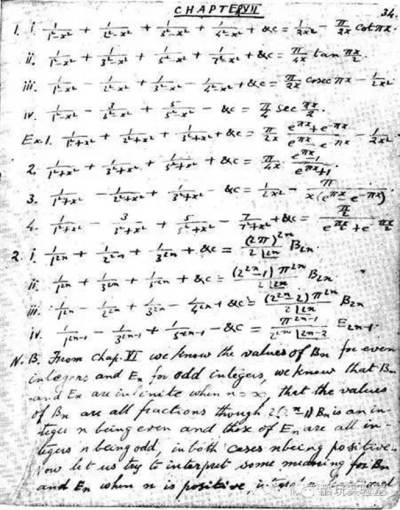 CHAPTER VII
34.
1. i. 1/(1²-x²) + 1/(2²-x²) + 1/(3²-x²) + 1/(4²-x²) + &c = 1/(2x²) - π/(2x) cot πx.
ii. 1/(1²-x²) + 1/(3²-x²) + 1/(5²-x²) + &c = π/(4x) tan πx/2
iii. 1/(1²-x²) - 1/(2²-x²) + 1/(3²-x²) - 1/(4²-x²) + &c = π/(2x) cosec πx - 1/(2x²)
iv. 1/(1²-x²) - 3/(3²-x²) + 5/(5²-x²) - &c = π/4 sec πx/2
Ex. 1. 1/(1²+x²) + 1/(2²+x²) + 1/(3²+x²) + &c = π/(2x) (e^πx + e^-πx)/(e^πx - e^-πx) - 1/(2x²)
2. 1/(1²+x²) + 1/(3²+x²) + 1/(5²+x²) + &c = π/(4x) (e^πx - 1)/(e^πx + 1)
3. 1/(1²+x²) - 1/(2²+x²) + 1/(3²+x²) - &c = 1/(2x²) - π/(x(e^πx - e^-πx))
4. 1/(1²+x²) - 3/(3²+x²) + 5/(5²+x²) - 7/(7²+x²) + &c =
2. i. 1/1^2n + 1/2^2n + 1/3^2n + &c = (2π)^2n / 2|2n B2n
ii. 1/1^2n + 1/3^2n + 1/5^2n + &c = (2^2n - 1)π^2n / 2|2n B2n
iii. 1/1^2n - 1/2^2n + 1/3^2n - 1/4^2n + &c = (2^2n - 2)π^2n / 2|2n B2n
iv. 1/1^2n-1 - 1/3^2n-1 + 1/5^2n-1 - &c = π^2n-1 / 2^2n|2n-2 E2n-1.
N.B. From chap. VI we know the values of Bn for even
integers and En for odd integers, we know that Bn
and En are infinite when n = ∞, that the values
of Bn are all fractions though Bn is an in-
teger n being even and those of En are all in-
tegers n being odd, in both cases n being positive.
Now let us try to interpret some meaning for Bn
and En when n is positive,